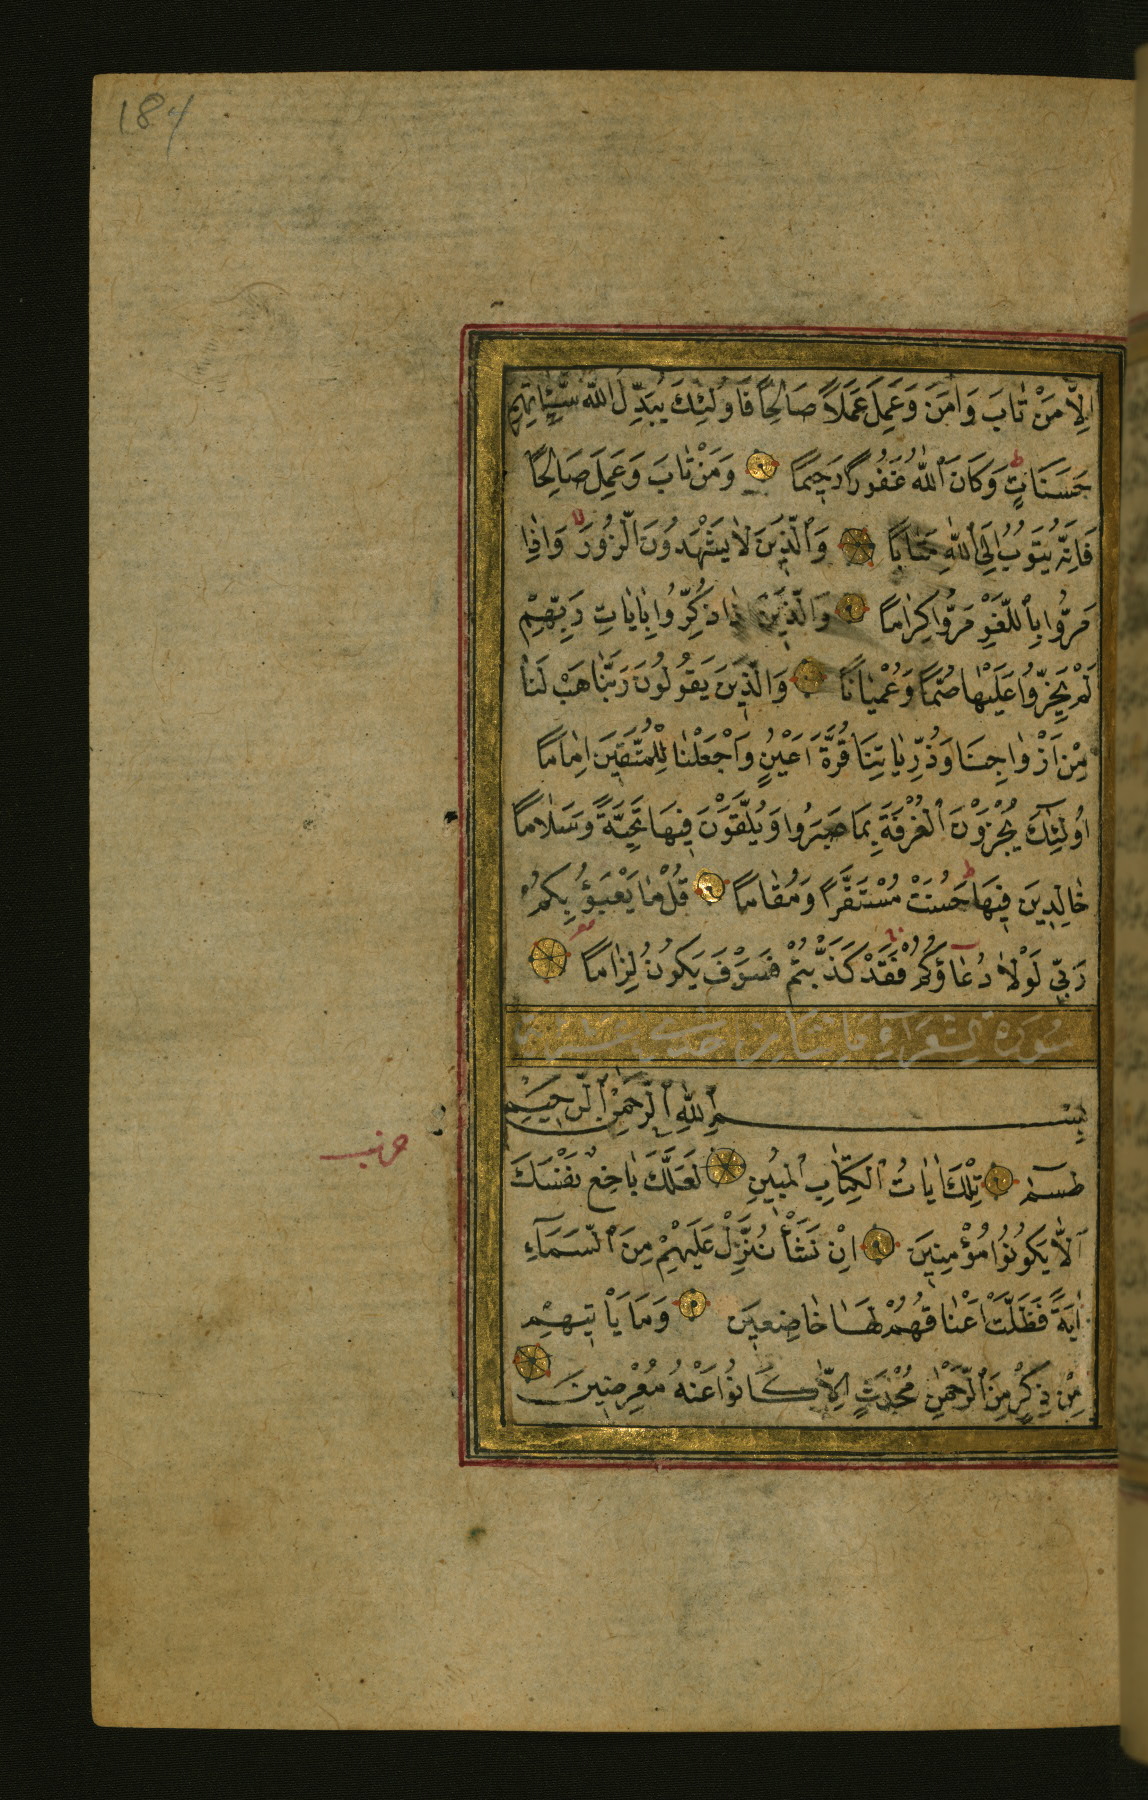 184
اِلَّا مَنْ تَابَ وَاٰمَنَ وَعَمِلَ عَمَلًا صَالِحًا فَاُولٰئِكَ يُبَدِّلُ اللّٰهُ سَيِّاٰتِهِمْ
حَسَنَاتٍ ط وَكَانَ ٱللّٰهُ غَفُورًا رَحِيمًا وَمَنْ تَابَ وَعَمِلَ صَالِحًا
فَاِنَّهُ يَتُوبُ اِلَى ٱللّٰهِ مَتَابًا وَٱلَّذِينَ لَا يَشْهَدُونَ ٱلزُّورَ لا وَاِذَا
مَرُّوا بِٱللَّغْوِ مَرُّوا كِرَامًا وَالَّذِينَ اِذَا ذُكِّرُوا بِاٰيَاتِ رَبِّهِمْ
لَمْ يَخِرُّوا عَلَيْهَا صُمًّا وَعُمْيَانًا وَالَّذِينَ يَقُولُونَ رَبَّنَا هَبْ لَنَا
مِنْ اَزْوَاجِنَا وَذُرِّيَّاتِنَا قُرَّةَ اَعْيُنٍ وَاجْعَلْنَا لِلْمُتَّقِينَ اِمَامًا
اُولٰئِكَ يُجْزَوْنَ ٱلْغُرْفَةَ بِمَا صَبَرُوا وَيُلَقَّوْنَ فِيهَا تَحِيَّةً وَسَلَامًا
خَالِدِينَ فِيهَا ط حَسُنَتْ مُسْتَقَرًّا وَمُقَامًا قُلْ مَا يَعْبَؤُ بِكُمْ
رَبِّي لَوْلَا دُعَاؤُكُمْ فَقَدْ كَذَّبْتُمْ فَسَوْفَ يَكُونُ لِزَامًا
سورة الشعراء مائتان
بِسْمِ ٱللّٰهِ ٱلرَّحْمٰنِ ٱلرَّحِيمِ
حزب
طسم تِلْكَ اٰيَاتُ ٱلْكِتَابِ ٱلْمُبِينِ لَعَلَّكَ بَاخِعٌ نَفْسَكَ
اَلَّا يَكُونُوا مُؤْمِنِينَ اِنْ نَشَأْ نُنَزِّلْ عَلَيْهِمْ مِنَ ٱلسَّمَاءِ
اٰيَةً فَظَلَّتْ اَعْنَاقُهُمْ لَهَا خَاضِعِينَ وَمَا يَأْتِيهِمْ
مِنْ ذِكْرٍ مِنَ ٱلرَّحْمٰنِ مُحْدَثٍ اِلَّا كَانُوا عَنْهُ مُعْرِضِينَ